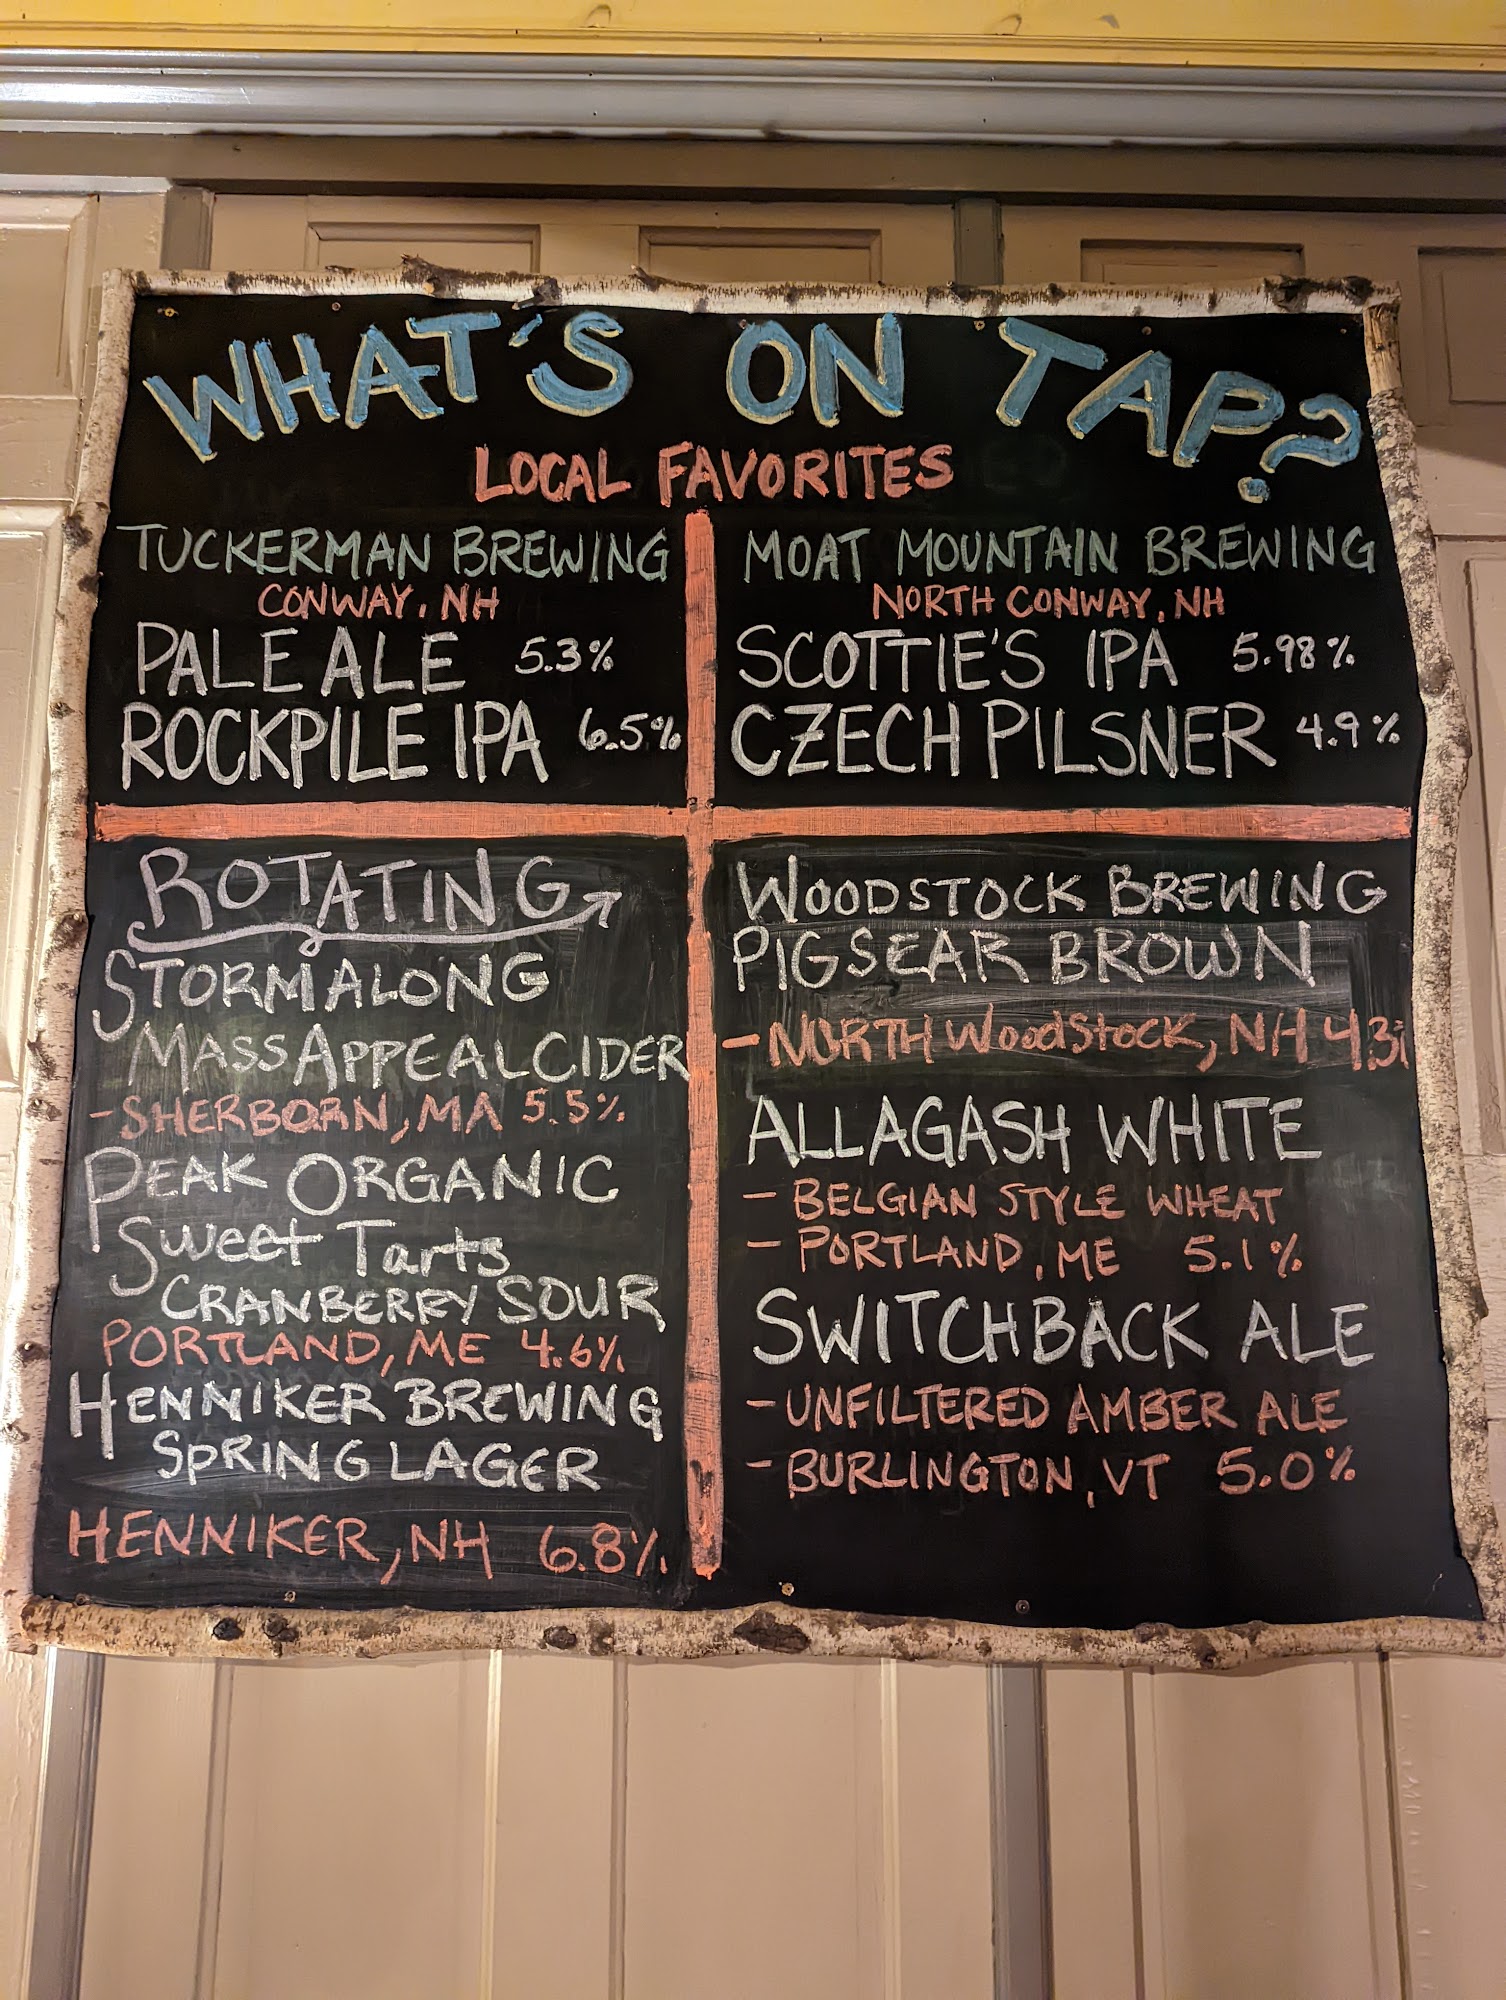 WHAT'S ON TAP?
LOCAL FAVORITES
TUCKERMAN BREWING
CONWAY, NH
PALE ALE 5.3%
ROCKPILE IPA 6.5%
MOAT MOUNTAIN BREWING
NORTH CONWAY, NH
SCOTTIE'S IPA 5.98%
CZECH PILSNER 4.9%
ROTATING
STORMALONG
MASS APPEAL CIDER
-SHERBORN, MA 5.5%
PEAK ORGANIC
Sweet Tarts
CRANBERRY SOUR
PORTLAND, ME 4.6%
HENNIKER BREWING
SPRING LAGER
HENNIKER, NH 6.8%
WOODSTOCK BREWING
PIGSEAR BROWN
- NORTH WOODSTOCK, NH 4.3%
ALLAGASH WHITE
- BELGIAN STYLE WHEAT
- PORTLAND, ME 5.1%
SWITCHBACK ALE
- UNFILTERED AMBER ALE
- BURLINGTON, VT 5.0%